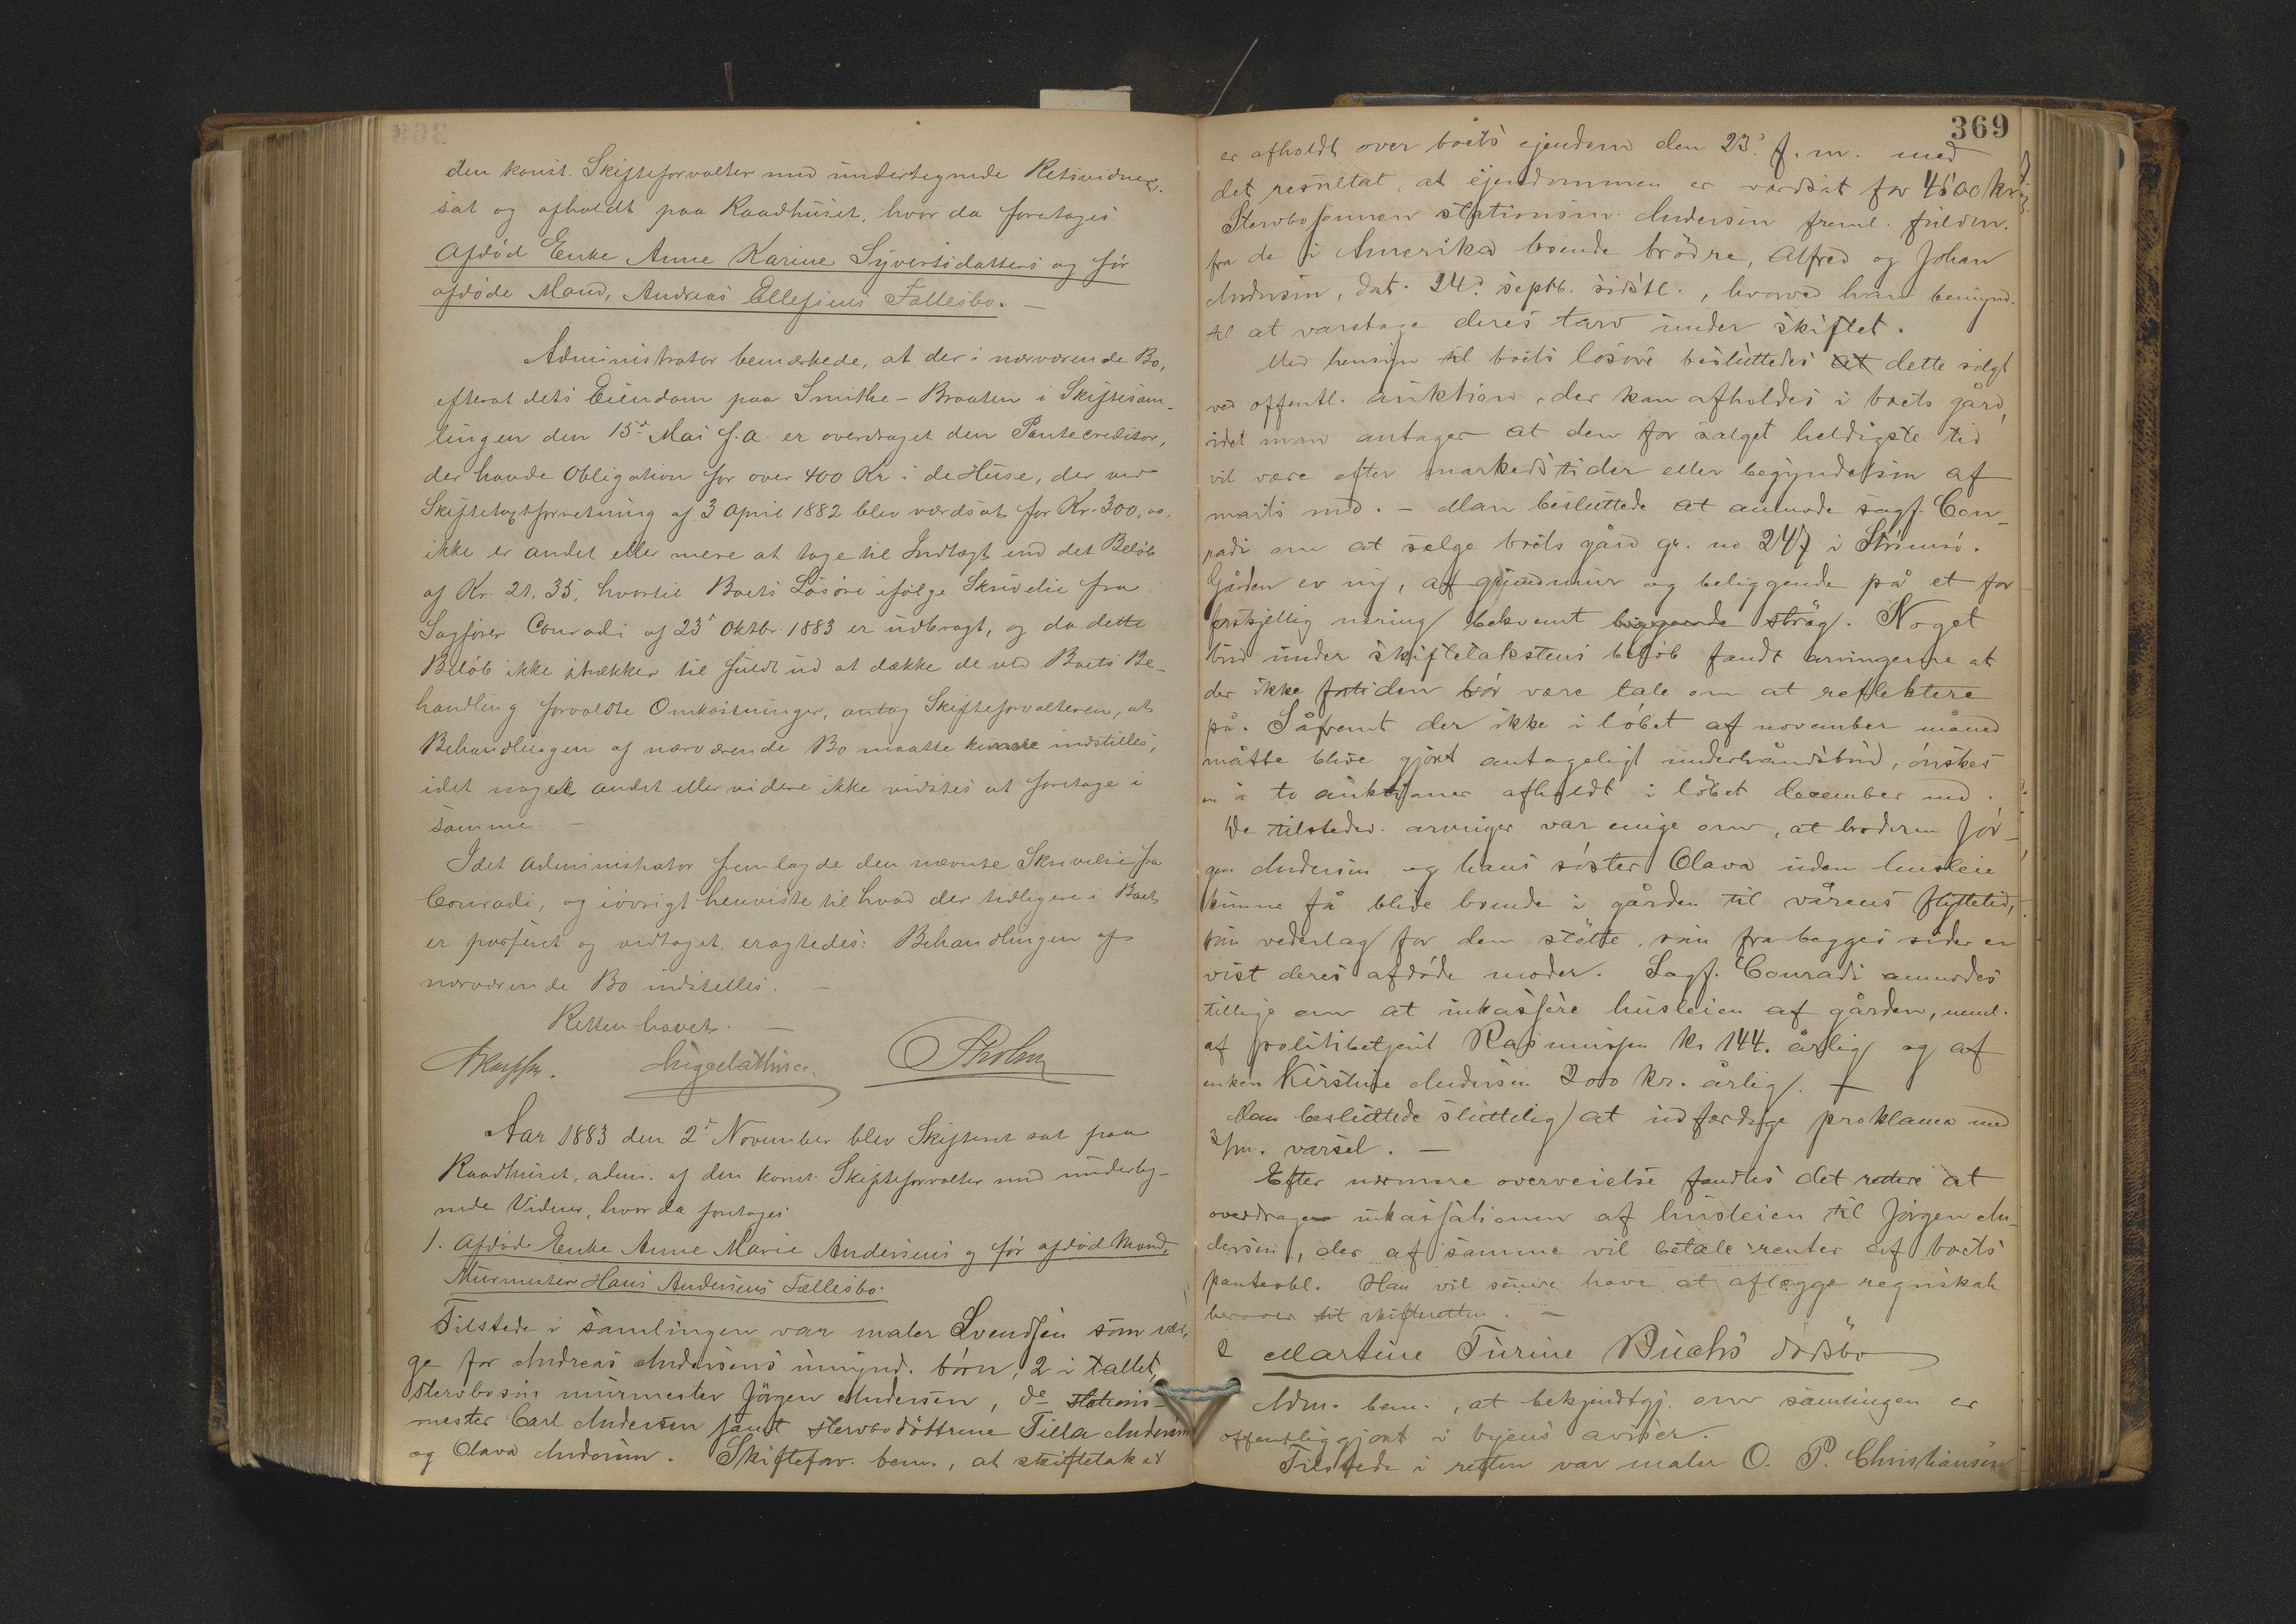 den konst. Skifteforvalter med undertegnede Retsvidner.
sat og afholdt paa Raadhuset, hvor da foretages
Afdød Enke Anne Karine Syvertsdatters og før
afdøde Mand, Andreas Ellefsens Fællesbo. —
Administrator bemærkede, at der i nærværende Bo,
efterat dets Eiendom paa Smithe-Braaten i Skiftesam-
lingen den 15de Mai f.a. er overdraget den Pantecreditor,
der havde Obligation for over 400 Kr i de Huse, der ved
Skiftetaxtforretning af 3 April 1882 blev værdsat for Kr. 300,00,
ikke er andet eller mere at tage til Indtægt end det Beløb
af Kr. 21.35, hvortil Boets Løsøre ifølge Skrivelse fra
Sagfører Conradi af 23de Oktbr. 1883 er udbragt, og da dette
Beløb ikke strækker til fuldt ud at dække de ved Boets Be-
handling forvoldte Omkostninger, antog Skifteforvalteren, at
Behandlingen af nærværende Bo maatte kunne indstilles,
idet noget andet eller videre ikke vidstes at foretage i
samme. —
Idet Administrator fremlagde den nævnte Skrivelse fra
Conradi, og iøvrigt henviste til hvad der tidligere i Boet
er passeret og vedtaget, eragtedes: Behandlingen af
nærværende Bo indstilles. —
Retten hævet. —
Aar 1883 den 2de November blev Skifteret sat paa
Raadhuset, adm. af den konst. Skifteforvalter med underteg-
nede Vidner, hvor da foretages
1. Afdød Enke Anne Marie Andersens og før afdød Mand,
Murmester Hans Andersens Fællesbo.
Tilstede i samlingen var maler Svendsen som vær-
ge for Andreas Andersens umynd. børn, 2 i tallet,
stervbosøn murmester Jørgen Andersen, do stations-
mester Carl Andersen samt stervbodøttrene Tilla Andersen
og Olava Andersen. Skifteforv. bem., at skiftetakst
369
er afholdt over boets ejendom den 23. f.m. med
det resultat, at ejendommen er værdsat for 4500 kr.
Stervbosønnen stationsm. Andersen freml. fuldm.
fra de i Amerika boende brødre, Alfred og Johan
Andersen, dat. 24de septb. sidstl., hvorved han bemynd.
til at varetage deres tarv under skiftet.
Med hensyn til boets løsøre besluttedes at dette solgt
ved offentl. auktion, der kan afholdes i boets gård,
idet man antager at den for salget heldigste tid
vil være efter markedstider eller begyndelsen af
marts md. — Man besluttede at anmode sagf. Con-
radi om at sælge boets gård gr. no 247 i Strømsø.
Gården er ny, af grundmur og beliggende på et for
forskjellig næring bekvemt byggende strøg. Noget
bud under skiftetakstens beløb fandt arvingerne at
der ikke fortiden bør være tale om at reflektere
på. Såfremt der ikke i løbet af november måned
måtte blive gjort antageligt underhåndsbud, ønskes
en à to auktioner afholdt i løbet december md.
De tilstedev. arvinger var enige om, at broderen Jør-
gen Andersen og hans søster Olava uden husleie
kunne få blive boende i gården til vårens flyttetid,
som vederlag for den støtte, som fra begges sider er
vist deres afdøde moder. Sagf. Conradi anmodes
tillige om at inkassere husleien af gården, neml.
af politibetjent Rasmussen kr 144. årlig og af
enken Kirstine Andersen 200 kr. årlig. +
Man besluttede sluttelig at udfærdige proklama med
3/m. varsel. —
Efter nærmere overveielse fandtes det rettere at
overdrage inkassationen af husleien til Jørgen An-
dersen, der af samme vil betale renter af boets
panteobl. Han vil senere have at aflægge regnskab
herover til skifteretten. —
2 Martine Turine Buchs dødsbo
Adm. bem., at bekjendtgj. om samlingen er
offentliggjort i byens aviser.
Tilstede i retten var maler O. P. Christiansen